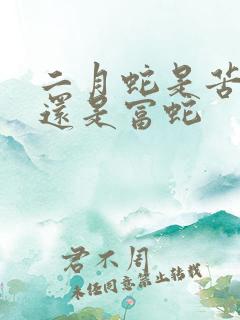 二月蛇是苦
還是富蛇
君不周
未经同意禁止转载